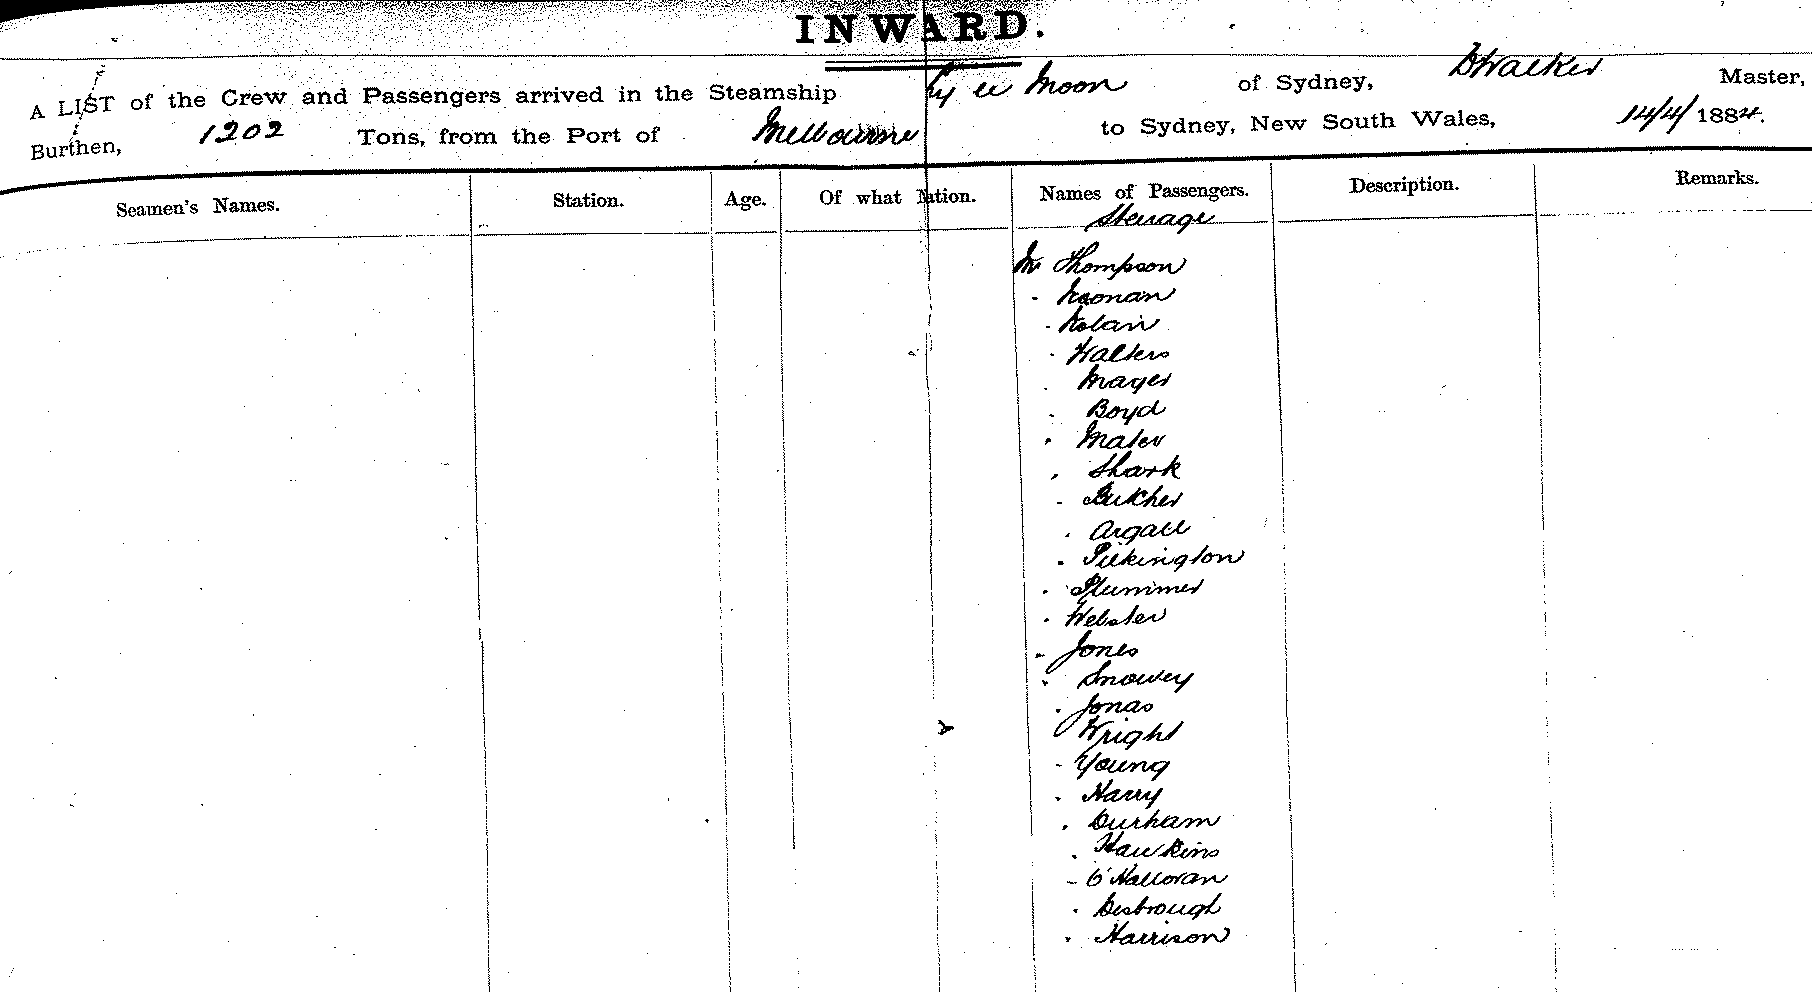 INWARD.
A LIST of the Crew and Passengers arrived in the Steamship Ly ee Moon of Sydney, Walker Master,
Burthen, 1202 Tons, from the Port of Melbourne to Sydney, New South Wales, 14/4/1884.
Seamen's Names. Station. Age. Of what Nation. Names of Passengers. Description. Remarks.
Steerage
Mr Thompson
- Noonan
- Nolan
- Walters
- Mayer
- Boyd
- Maler
- Shark
- Butcher
- Argall
- Pilkington
- Plummer
- Webster
- Jones
- Snowey
- Jonas
Wright
- Young
- Harry
- Durham
- Hawkins
- O'Halloran
- Desbrough
- Harrison